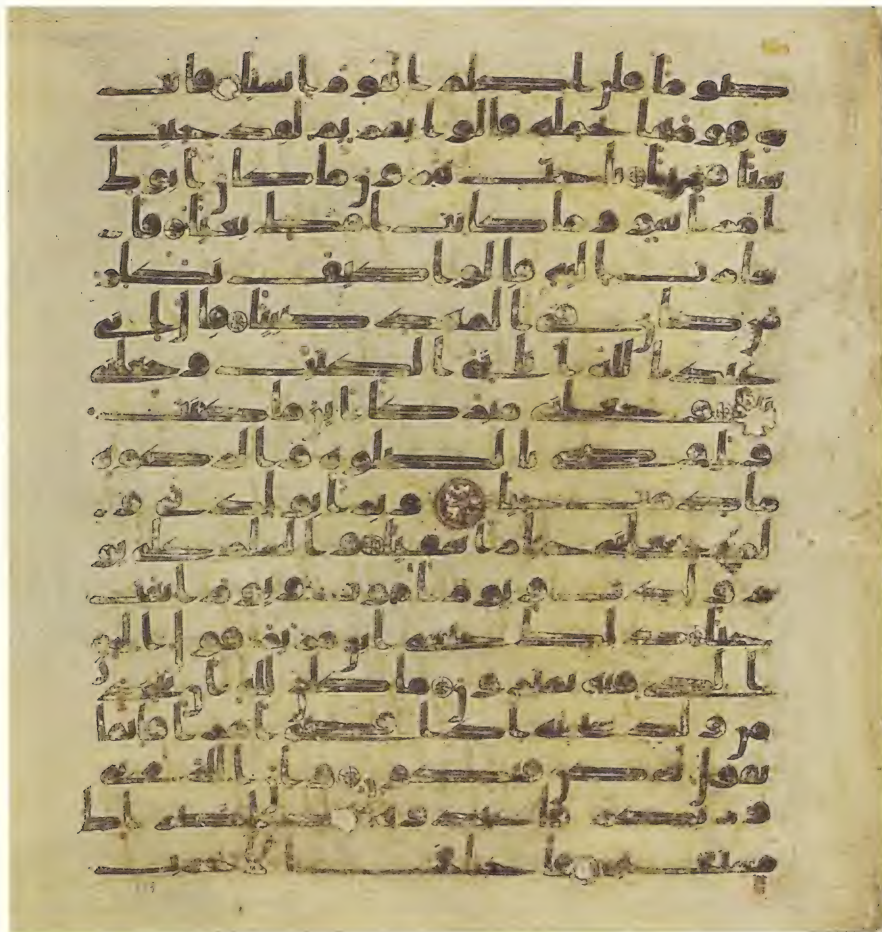 صوما فلن اكلم اليوم انسيا فاتت
به قومها تحمله قالوا يمريم لقد جيت
شيا فريا ياخت هرون ما كان ابوك
امرا سو وما كانت امك بغيا فا
شارت اليه قالوا كيف نكلم
من كان في المهد صبيا قال انى
عبد الله اتنى الكتب وجعلنى
نبيا وجعلنى مبركا اين ما كنت
واوصنى بالصلوة والزكوة
ما دمت حيا وبرا بولدتى و
لم يجعلنى جبارا شقيا والسلم على يو
م ولدت ويوم اموت ويوم ابعث
حيا ذلك عيسى ابن مريم قول
الحق الذى فيه يمترون ما كان لله ان يتخذ
من ولد سبحنه اذا قضى امرا فانما
يقول له كن فيكون وان الله ربى
وربكم فاعبدوه هذا صرط
مستقيم فاختلف الاحزب